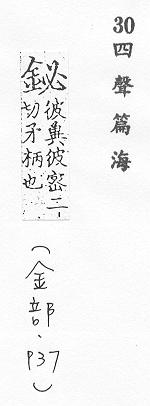 30四聲篇海
鉍彼兾彼密二
切矛柄也
(金部·P37)